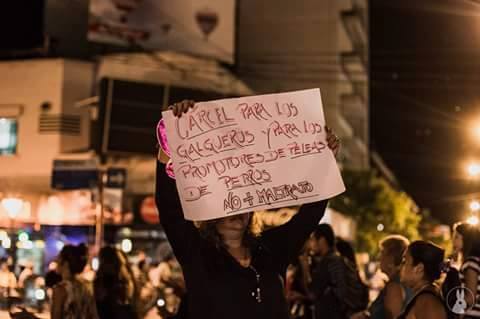 CARCEL PARA LOS
GALGUEROS Y PARA LOS
PROMOTORES DE PELEAS
DE PERROS
NO + MALTRATO